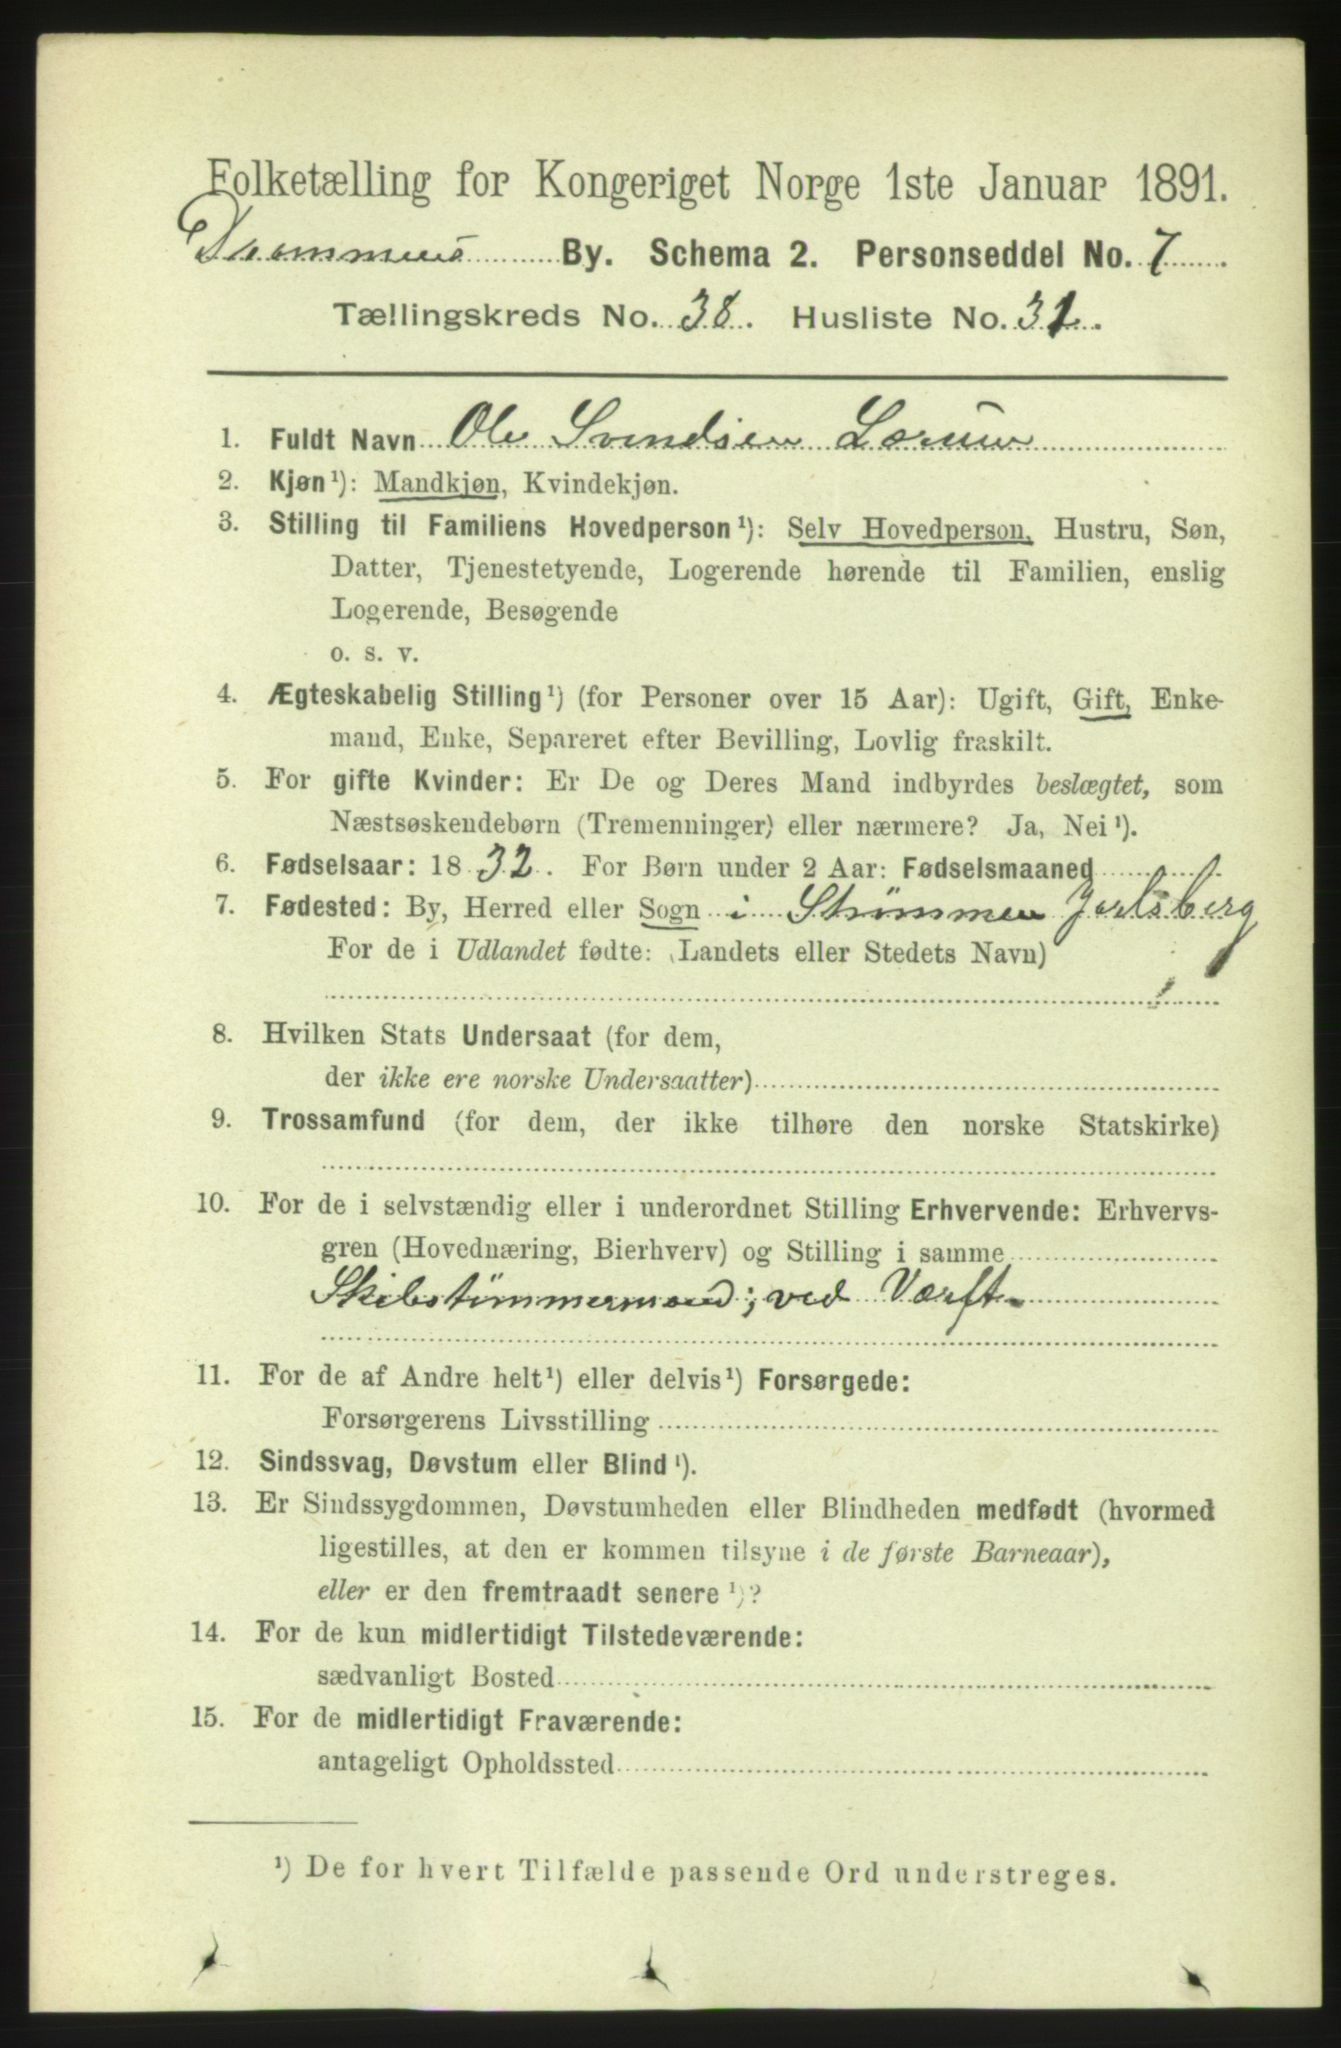 Folketælling for Kongeriget Norge 1ste Januar 1891.
Drammens By. Schema 2. Personseddel No. 7.
Tællingskreds No. 38. Husliste No. 31.
1. Fuldt Navn Ole Svendsen
2. Kjøn¹): Mandkjøn, Kvindekjøn.
3. Stilling til Familiens Hovedperson¹): Selv Hovedperson, Hustru, Søn,
Datter, Tjenestetyende, Logerende hørende til Familien, enslig
Logerende, Besøgende
o. s. v.
4. Ægteskabelig Stilling¹) (for Personer over 15 Aar): Ugift, Gift, Enke-
mand, Enke, Separeret efter Bevilling, Lovlig fraskilt.
5. For gifte Kvinder: Er De og Deres Mand indbyrdes beslægtet, som
Næstsøskendebørn (Tremenninger) eller nærmere? Ja, Nei¹).
6. Fødselsaar: 1832. For Børn under 2 Aar: Fødselsmaaned
7. Fødested: By, Herred eller Sogn i Strømmen Jarlsberg
For de i Udlandet fødte: (Landets eller Stedets Navn)
8. Hvilken Stats Undersaat (for dem,
der ikke ere norske Undersaatter)
9. Trossamfund (for dem, der ikke tilhøre den norske Statskirke)
10. For de i selvstændig eller i underordnet Stilling Erhvervende: Erhvervs-
gren (Hovednæring, Bierhverv) og Stilling i samme
Skibstømmermand; ved Værft.
11. For de af Andre helt¹) eller delvis¹) Forsørgede:
Forsørgerens Livsstilling
12. Sindssvag, Døvstum eller Blind¹).
13. Er Sindssygdommen, Døvstumheden eller Blindheden medfødt (hvormed
ligestilles, at den er kommen tilsyne i de første Barneaar),
eller er den fremtraadt senere¹)?
14. For de kun midlertidigt Tilstedeværende:
sædvanligt Bosted
15. For de midlertidigt Fraværende:
antageligt Opholdssted
¹) De for hvert Tilfælde passende Ord understreges.